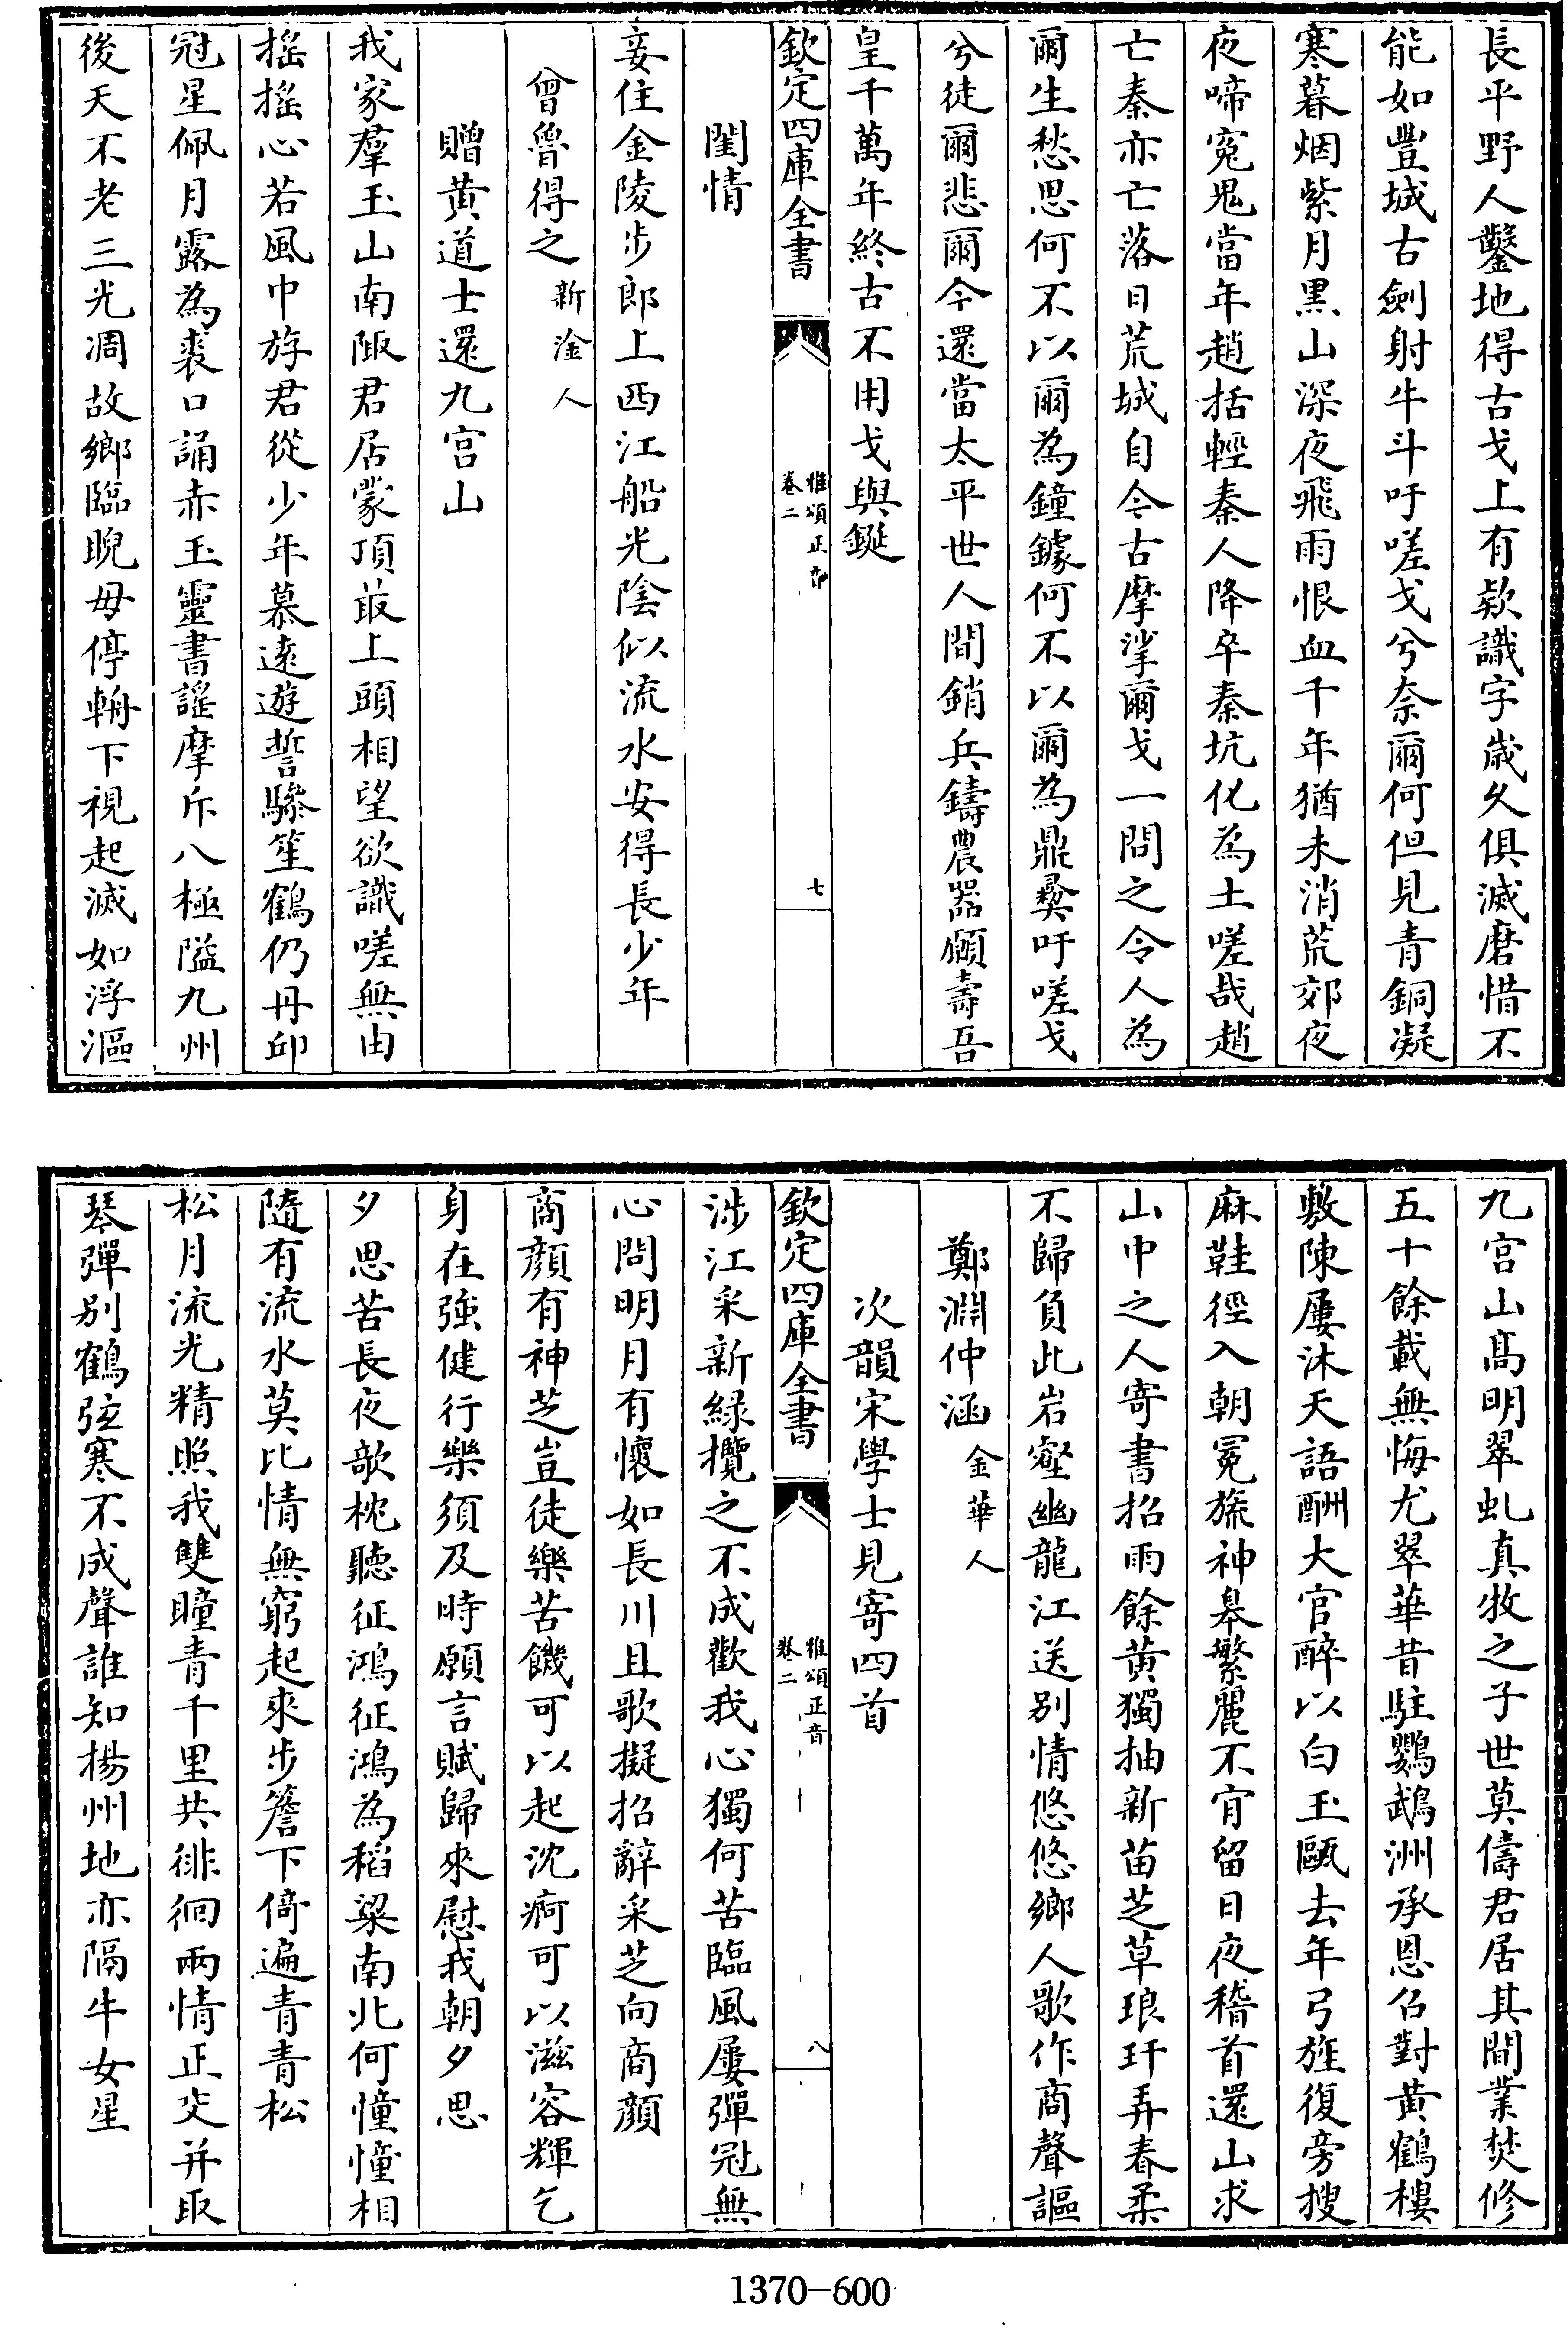 長平野人鑿地得古戈上有欵識字歲久俱滅磨惜不
能如豐城古劍射牛斗吁嗟戈兮奈爾何但見青銅凝
寒暮烟紫月黒山深夜飛雨恨血千年猶未消荒郊夜
夜啼寃鬼當年趙括輕秦人降卒秦坑化為土嗟哉趙
亡秦亦亡落日荒城自今古摩挲爾戈一問之令人為
爾生愁思何不以爾為鐘鐻何不以爾為鼎彛吁嗟戈
兮徒爾悲爾今還當太平世人間銷兵鑄農器願壽吾
皇千萬年終古不用戈與鋋
欽定四庫全書
雅頌正音
卷二
七
閨情
妾住金陵步郎上西江船光陰似流水安得長少年
曾魯得之 新淦人
贈黄道士還九宫山
我家羣玉山南陬君居蒙頂最上頭相望欲識嗟無由
揺揺心若風中斿君從少年慕逺遊誓驂笙鶴仍丹邱
冠星佩月露為裘口誦赤玉靈書謡摩斥八極隘九州
後天不老三光凋故鄉臨睨毋停輈下視起滅如浮漚
九宫山髙明翠虬真牧之子世莫儔君居其間業焚修
五十餘載無悔尤翠華昔駐鸚鵡洲承恩召對黄鶴樓
敷陳屢沐天語酬大官醉以白玉甌去年弓旌復旁搜
麻鞋徑入朝冕旒神臯繁麗不肯留日夜稽首還山求
山中之人寄書招雨餘黄獨抽新苗芝草琅玕弄春柔
不歸負此岩壑幽龍江送别情悠悠鄉人歌作商聲謳
鄭淵仲涵 金華人
次韻宋學士見寄四首
欽定四庫全書
雅頌正音
卷二
八
涉江采新緑攬之不成歡我心獨何苦臨風屢彈冠無
心問明月有懷如長川且歌擬招辭采芝向商顔
商顔有神芝豈徒樂苦饑可以起沈痾可以滋容輝乞
身在強健行樂須及時願言賦歸來慰我朝夕思
夕思苦長夜欹枕聽征鴻征鴻為稻粱南北何憧憧相
隨有流水莫比情無窮起來步簷下倚遍青青松
松月流光精照我雙瞳青千里共徘徊兩情正交并取
琴彈别鶴弦寒不成聲誰知揚州地亦隔牛女星
1370-600